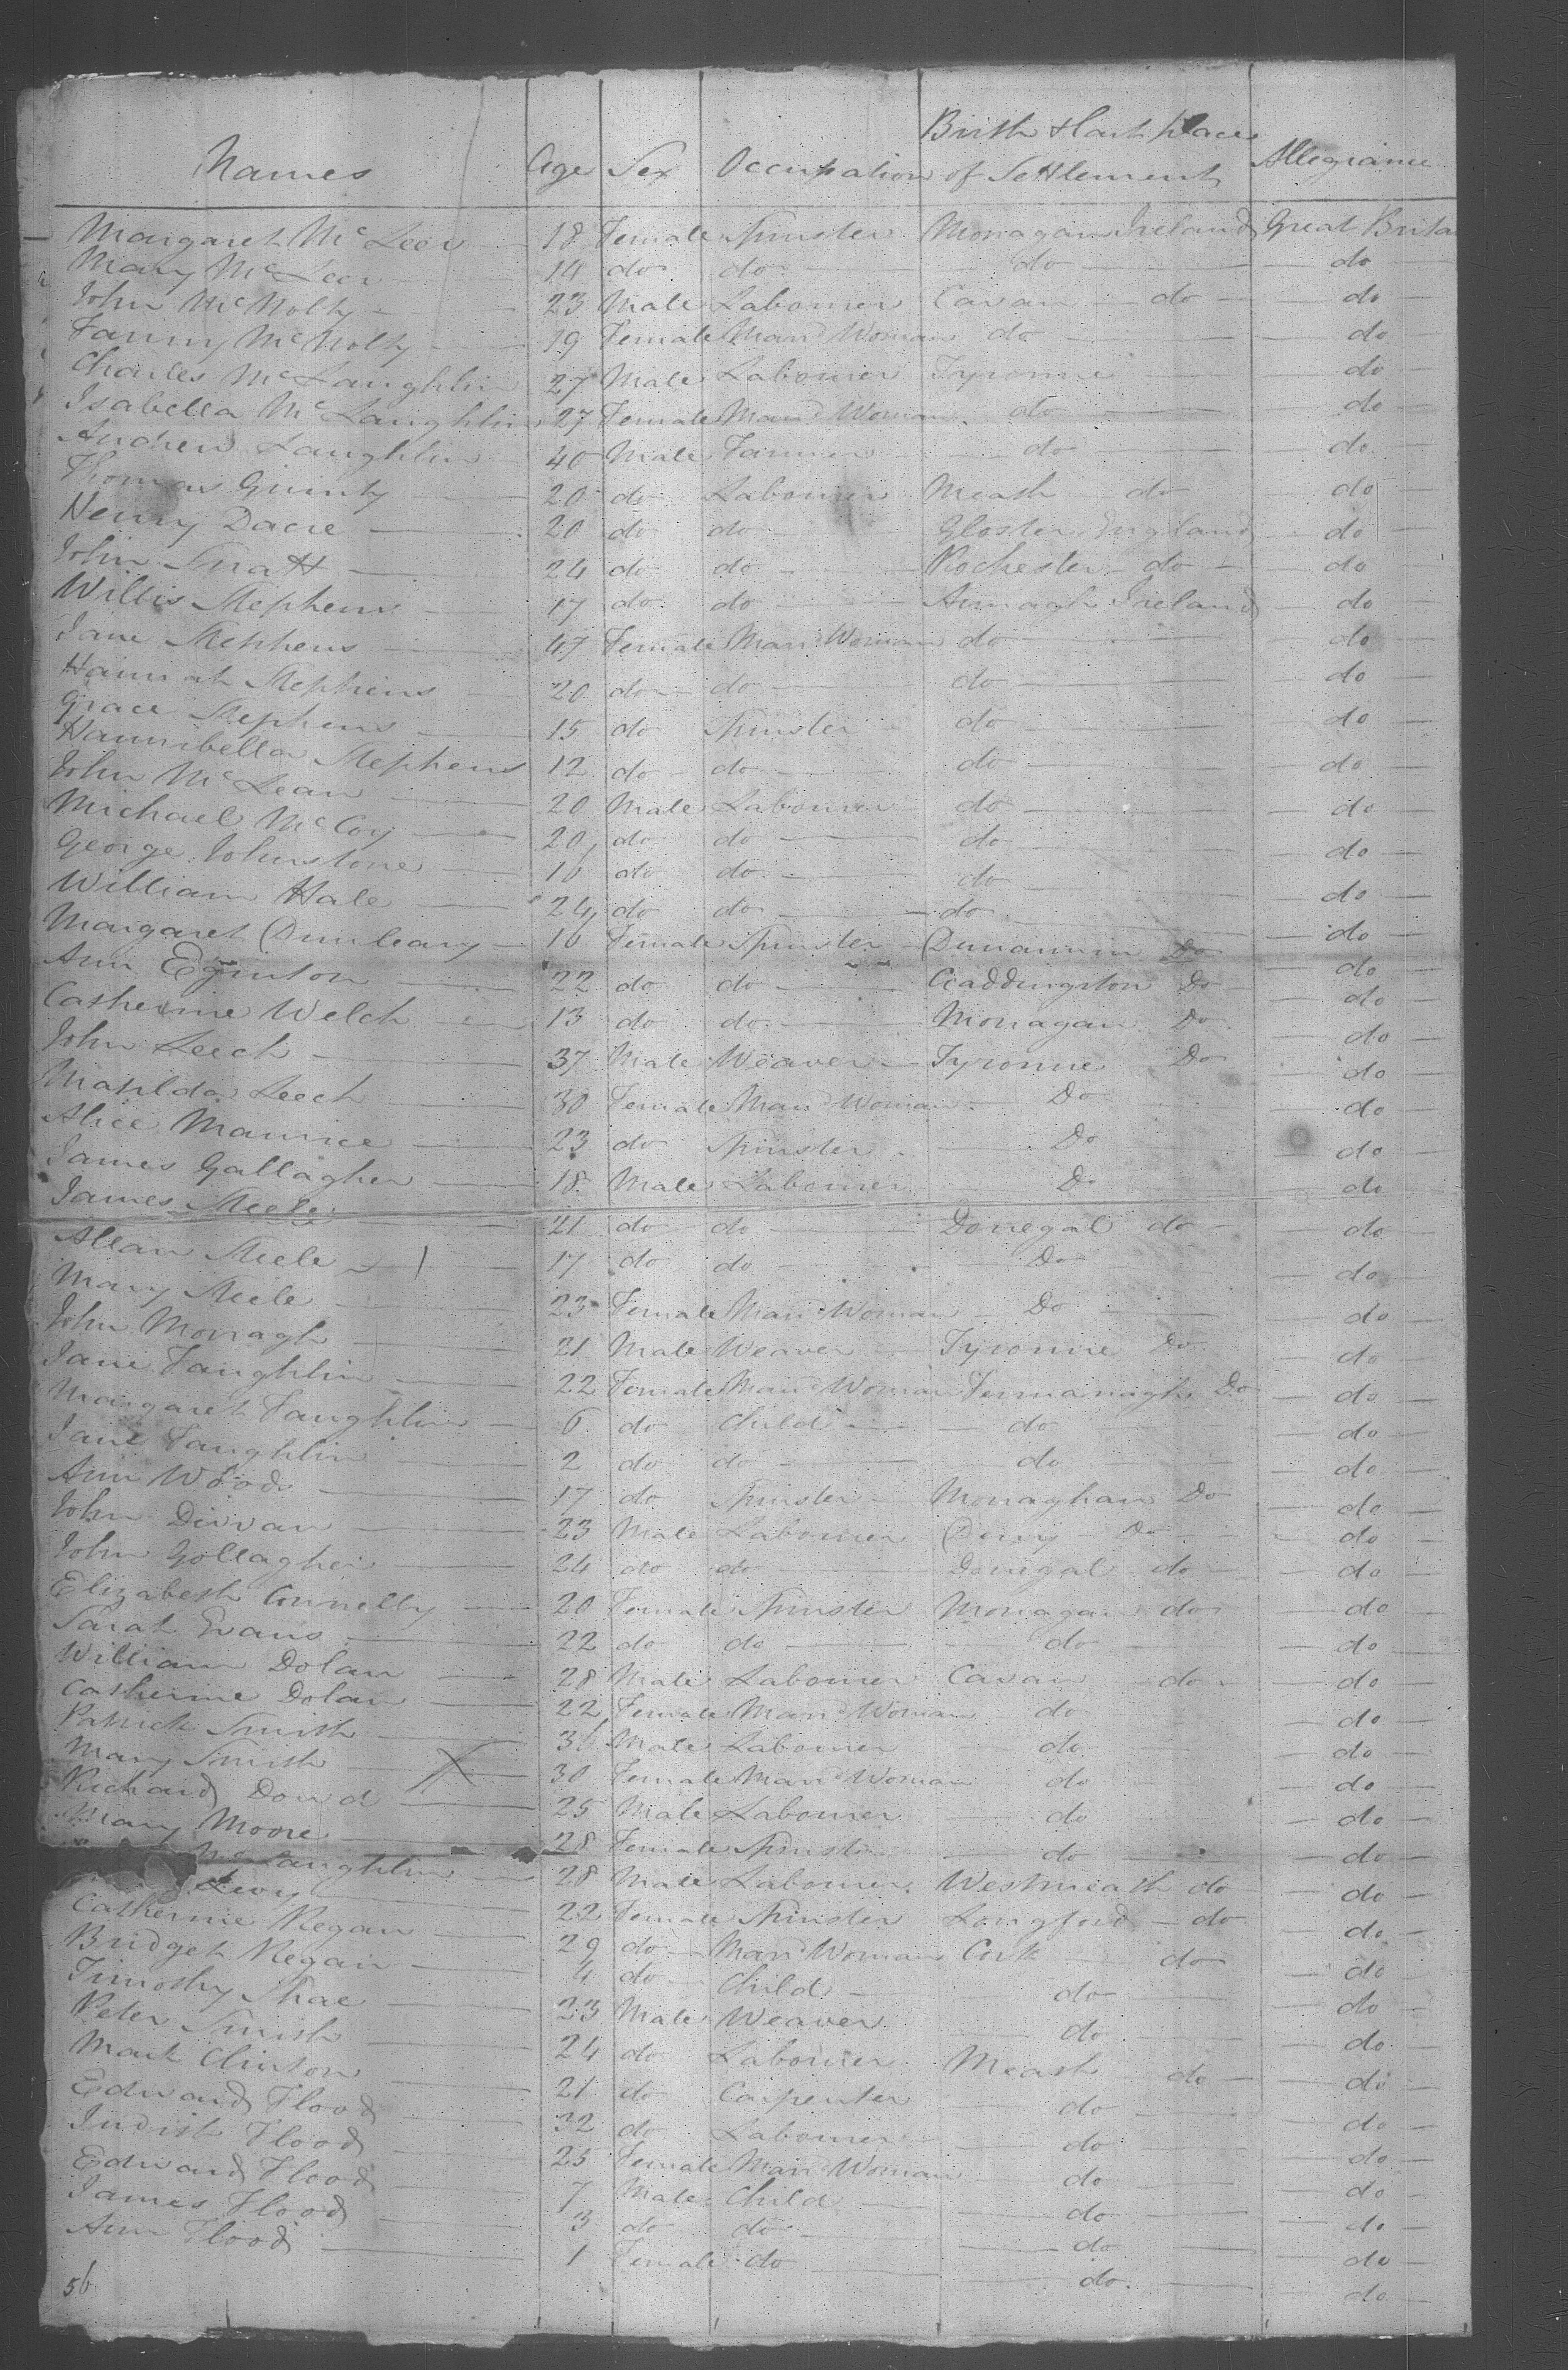 Names Age Sex Occupation Birth & last place of Settlement Allegiance
Margaret McLeer 18 Female Spinster Monagan Ireland Great Brita
Mary McLeer 14 do do do do
John McNolty 23 Male Labourer Cavan do do
Fanny McNolty 19 Female Mard Woman do do
Charles McLaughlin 27 Male Labourer Tyronne do
Isabella McLaughlin 27 Female Mard Woman do do
Andrew Laughlin 40 Male Farmer do do
Thomas Guinty 20 do Labourer Meath do do
Henry Dacre 20 do do Gloster England do
John Snatt 24 do do Rochester do do
Willis Stephens 17 do do Armagh Ireland do
Jane Stephens 47 Female Mard Woman do do
Hannah Stephens 20 do do do do
Grace Stephens 15 do Spinster do do
Hannibella Stephens 12 do do do do
John McLean 20 Male Labourer do do
Michael McCoy 20 do do do do
George Johnstone 16 do do do do
William Hale 24 do do do do
Margaret Dunleavy 16 Female Spinster Do do
Ann Eginton 22 do do Caddington Do do
Catherine Welch 13 do do Monagan Do do
John Leech 37 Male Weaver Tyronne Do do
Matilda Leech 30 Female Mard Woman Do do
Alice Maurice 23 do Spinster Do do
James Gallagher 18 Male Labourer Do do
James Steele 21 do do Donegal do do
Allan Steele 17 do do Do do
Mary Steele 23 Female Mard Woman Do do
John Monagh 21 Male Weaver Tyronne Do do
Jane Faughlin 22 Female Mard Woman Fermanagh Do do
Margaret Faughlin 6 do Child do do
Jane Faughlin 2 do do do do
Ann Woods 17 do Spinster Monaghan Do do
John Divvan 23 Male Labourer Derry Do do
John Gollagher 24 do do Donegal do do
Elizabeth Connelly 20 Female Spinster Monagan do do
Sarah Evans 22 do do do do
William Dolan 28 Male Labourer Cavan do do
Catherine Dolan 22 Female Mard Woman do do
Patrick Smith 36 Male Labourer do do
Mary Smith 30 Female Mard Woman do do
Richard Dowd 25 Male Labourer do do
Mary Moore 28 Female Spinster do do
McLaughlin 28 Male Labourer Westmeath do do
Levy 22 Female Spinster Longford do do
Catherine Regan 29 do Mard Woman Cork do do
Bridget Regan 4 do Child do do
Timothy Shae 23 Male Weaver do do
Peter Smith 24 do Labourer Meath do do
Mark Clinton 21 do Carpenter do do
Edward Flood 32 do Labourer do do
Judith Flood 25 Female Mard Woman do do
Edward Flood 7 Male Child do do
James Flood 3 do do do do
Ann Flood 1 Female do do do
56